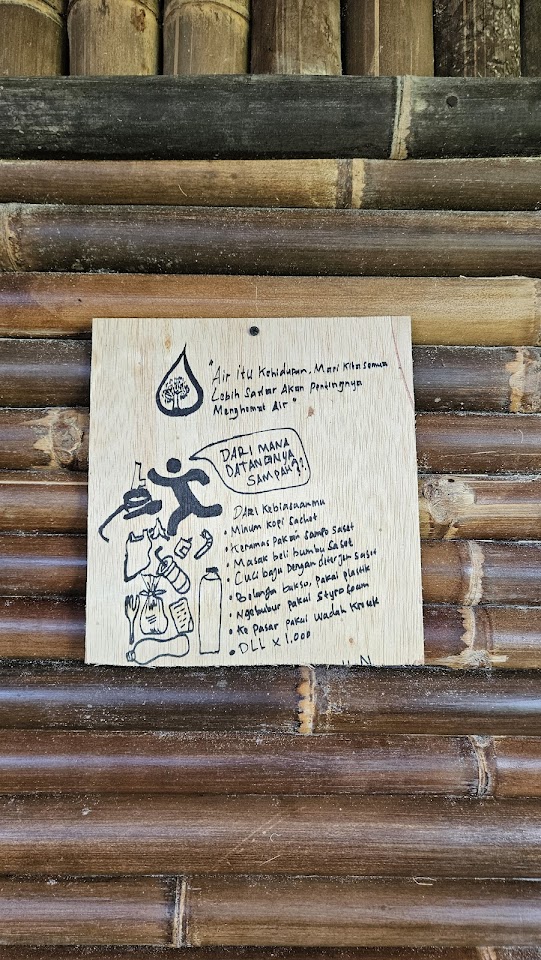 "Air itu Kehidupan. Mari Kita semua
Lebih Sadar Akan Pentingnya
Menghemat Air"
DARI MANA
DATANGNYA
SAMPAH?!
DARI Kebiasaanmu
• Minum kopi Sachet
• Keramas pakai sampo saset
• Masak beli bumbu saset
• Cuci baju dengan diterjen saset
• Belanja bakso, pakai plastik
• Ngebubur pakai Styrofoam
• Ke Pasar pakai wadah Kresek
• DLL x 1.000